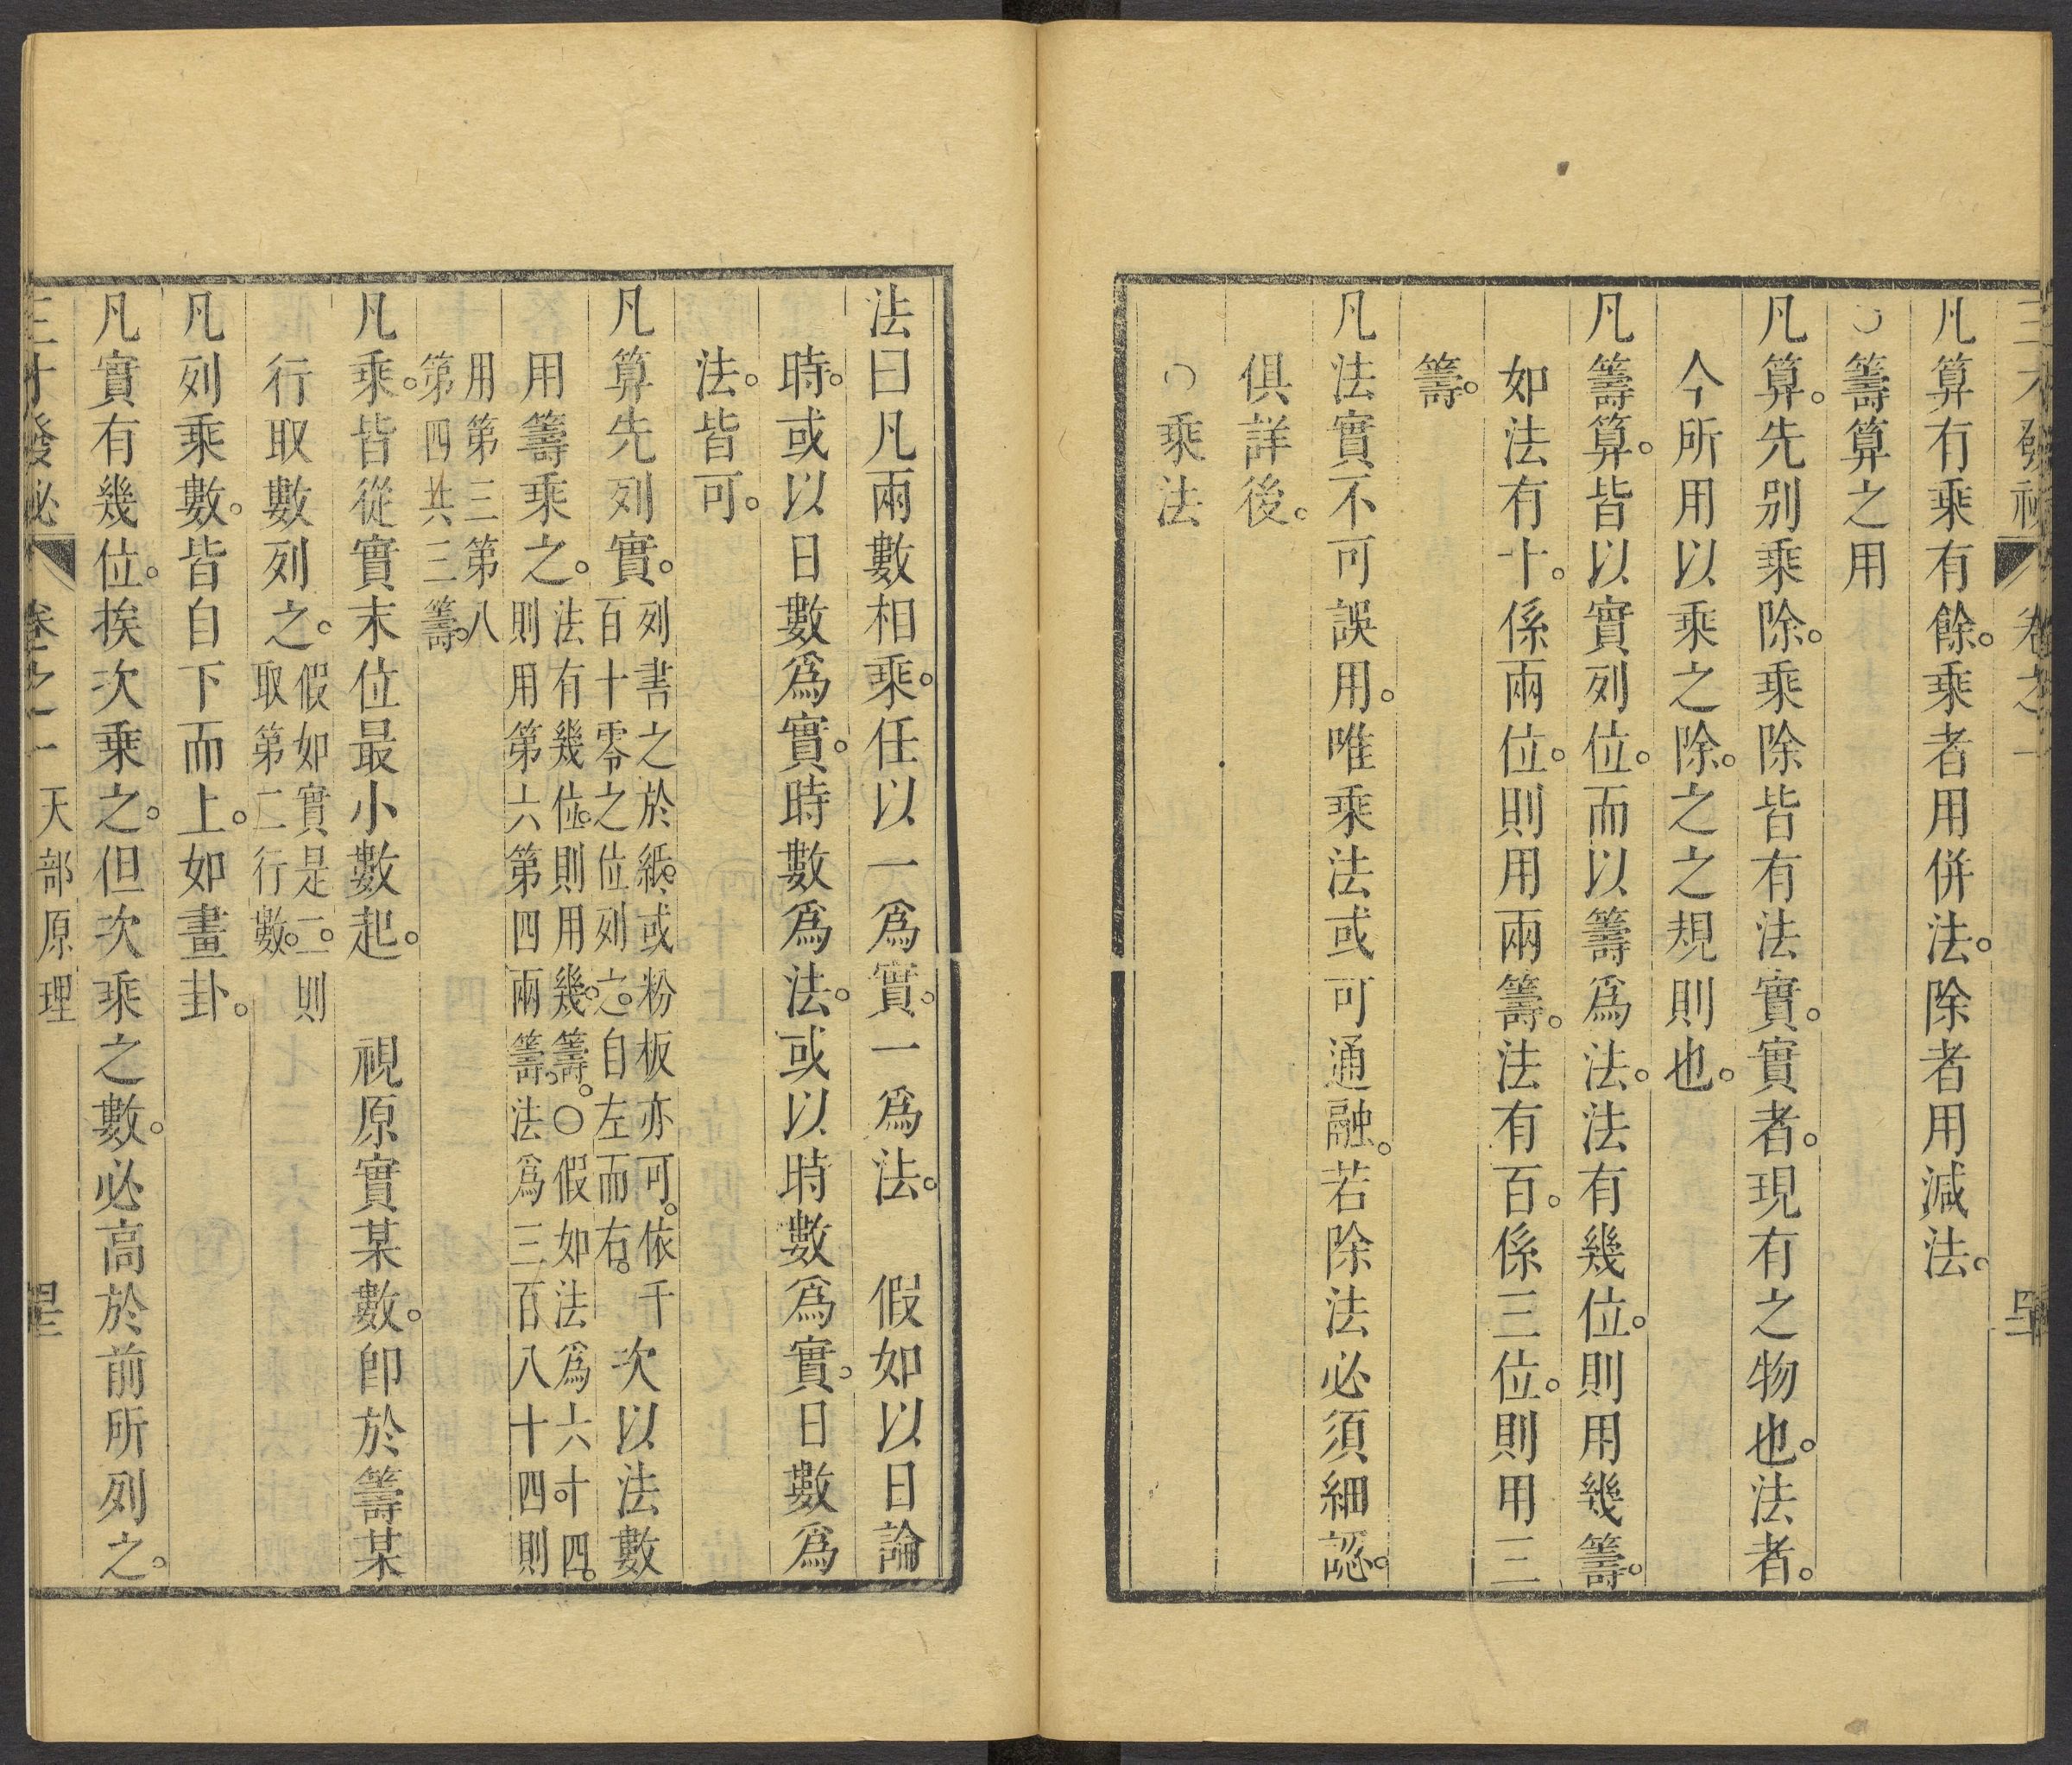 三才發祕 卷之一
凡算有乘有餘。乘者用併法。除者用減法。
○籌算之用
凡算。先別乘除。乘除皆有法實。實者。現有之物也。法者。
今所用以乘之除。之之規則也。
凡籌算。皆以實列位。而以籌爲法。法有幾位。則用幾籌。
如法有十。係兩位。則用兩籌。法有百。係三位。則用三
籌。
凡法實不可誤用。唯乘法或可通融。若除法必須細認。
俱詳後。
○乘法
法曰凡兩數相乘。任以一爲實。一爲法。 假如以日論
時。或以日數爲實。時數爲法。或以時數爲實。日數爲
法。皆可。
凡算先列實。列書之於紙。或粉板亦可。依千
百十零之位列之。自左而右。次以法數
用籌乘之。法有幾位。則用幾籌。○假如法爲六十四。
則用第六第四兩籌。法爲三百八十四則
用第三第八
第四共三籌。
凡乘。皆從實末位最小數起。 視原實某數。卽於籌某
行取數列之。假如實是二。則
取第二行數。
凡列乘數。皆自下而上。如畫卦。
凡實有幾位。挨次乘之。但次乘之數。必高於前所列之。
三才發祕 卷之一 天部原理